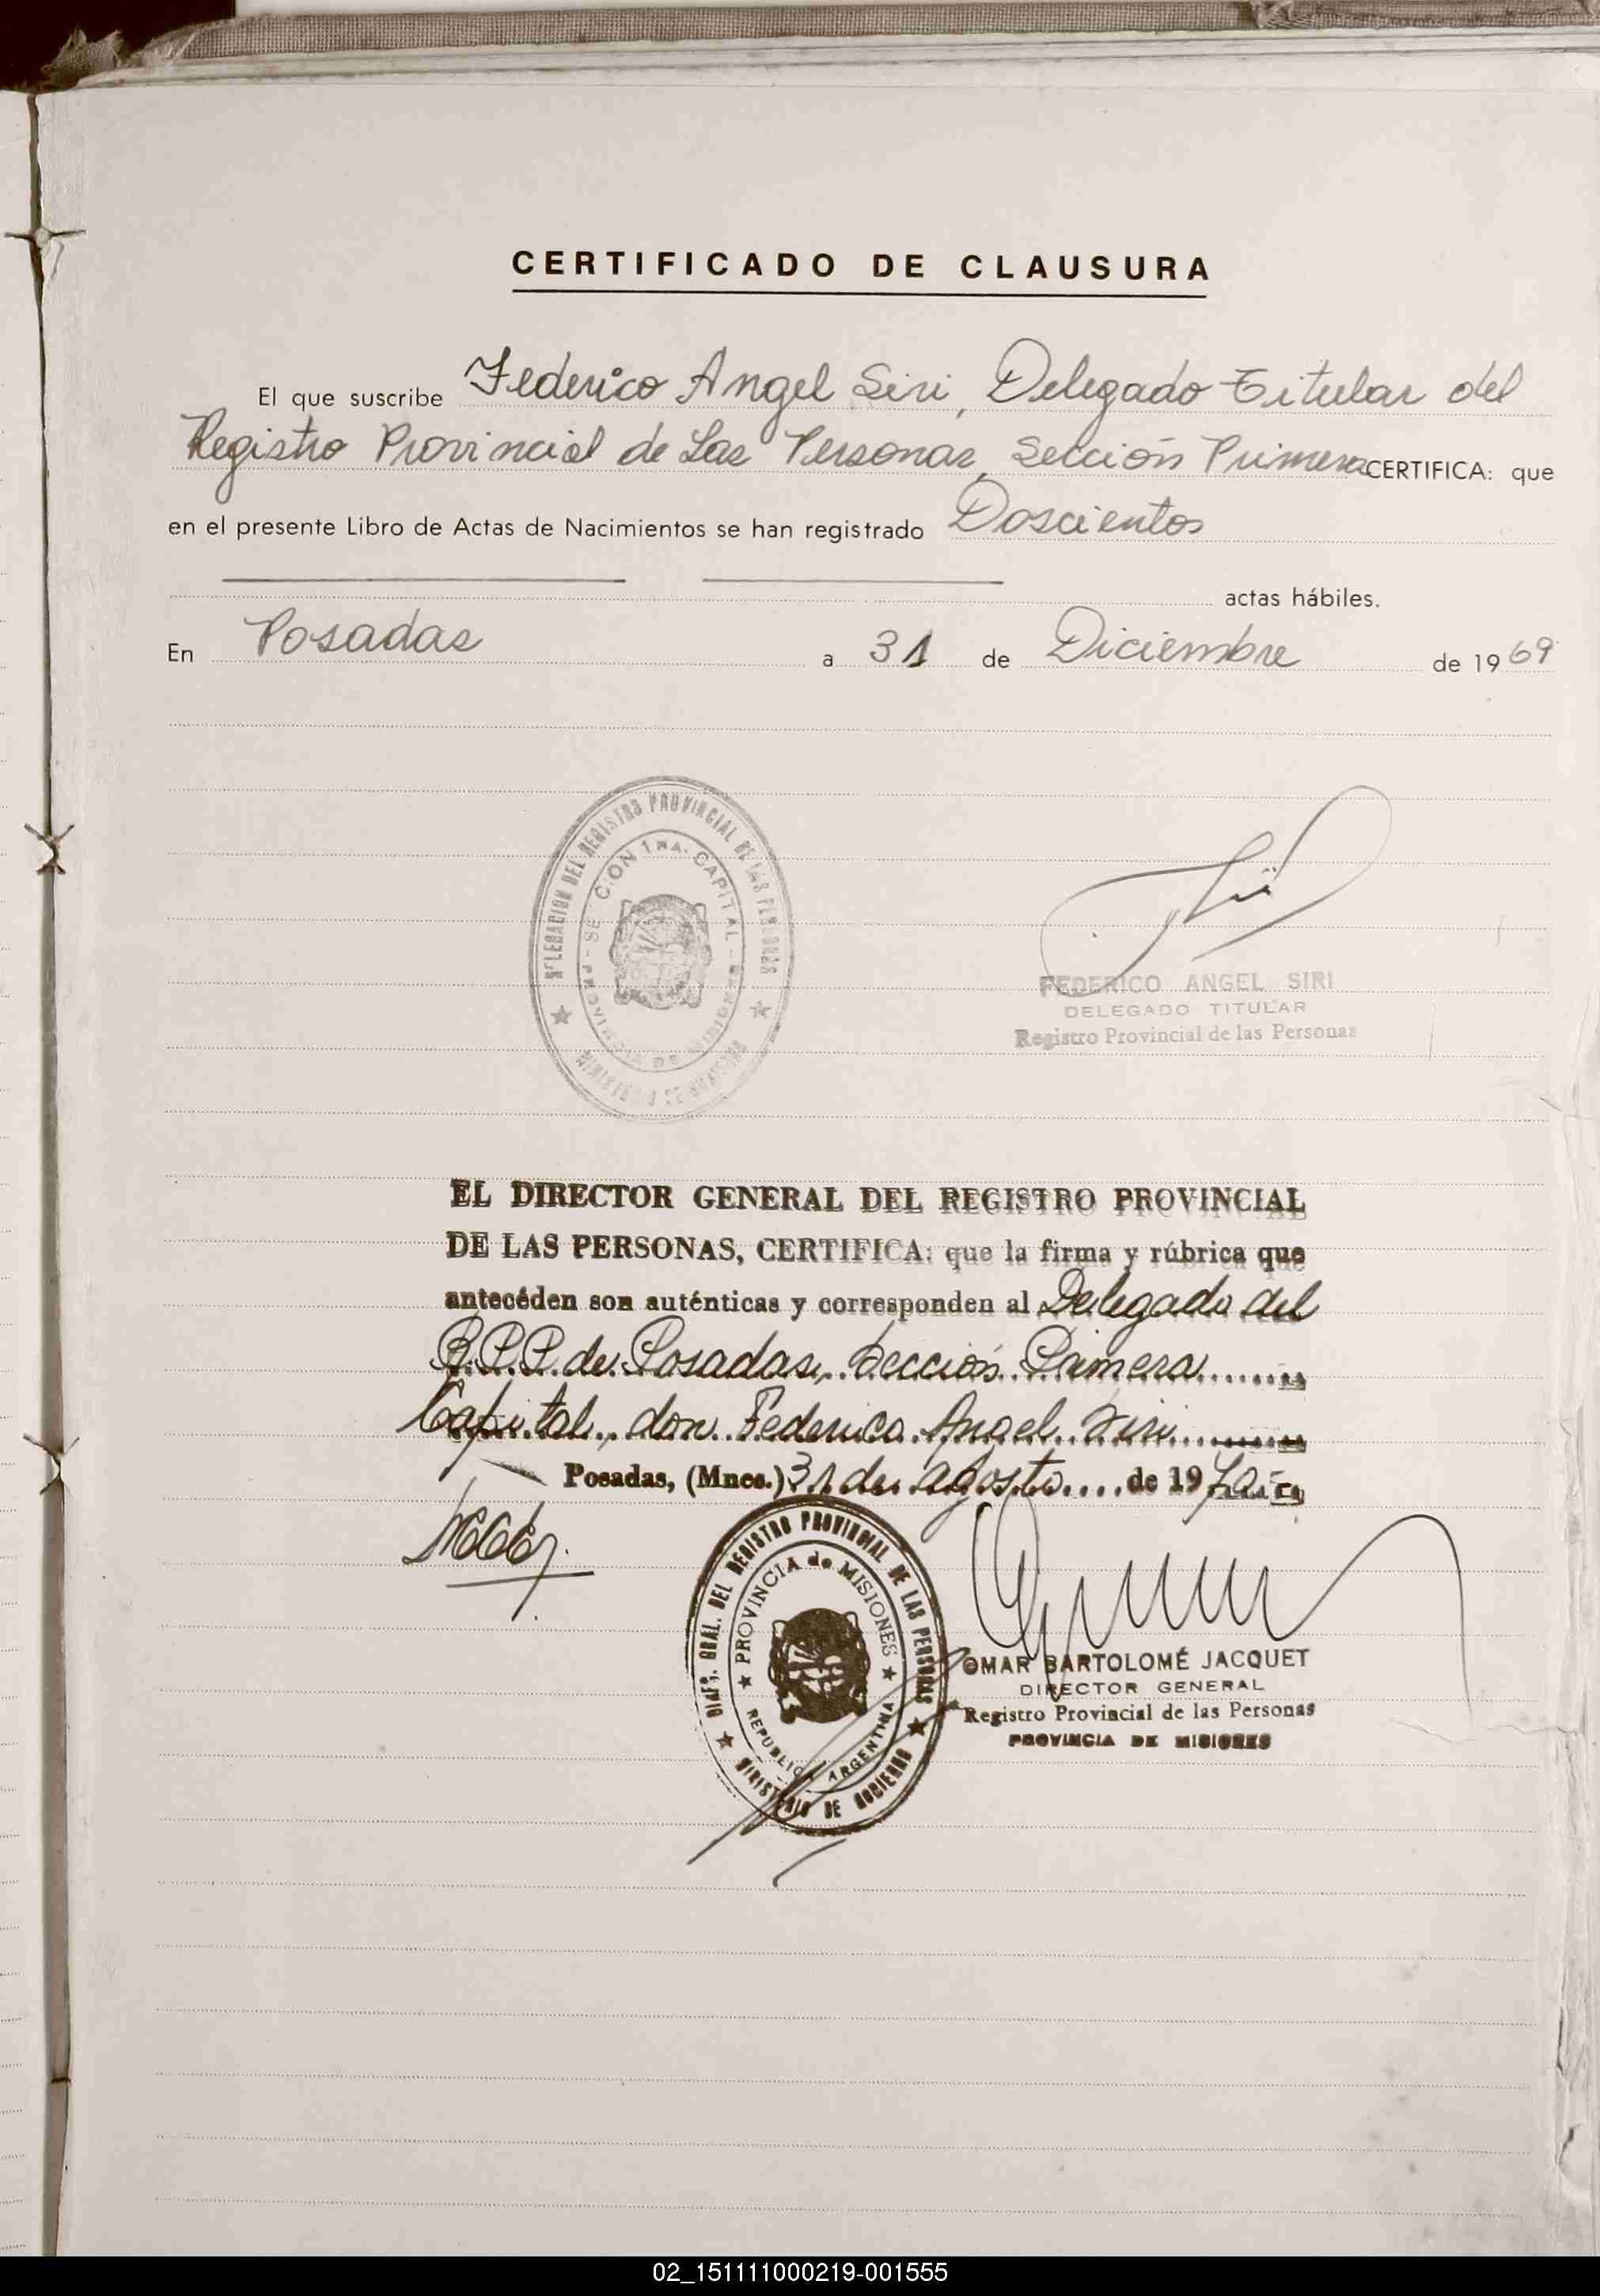 CERTIFICADO DE CLAUSURA
El que suscribe Federico Angel Siri, Delegado Titular del
Registro Provincial de Las Personas, Sección Primera CERTIFICA: que
en el presente Libro de Actas de Nacimientos se han registrado Doscientos
actas hábiles.
En Posadas a 31 de Diciembre de 1969
DELEGACION DEL REGISTRO PROVINCIAL DE LAS PERSONAS
SECCION 1RA. CAPITAL
PROVINCIA DE MISIONES
MINISTERIO DE GOBIERNO
FEDERICO ANGEL SIRI
DELEGADO TITULAR
Registro Provincial de las Personas
EL DIRECTOR GENERAL DEL REGISTRO PROVINCIAL
DE LAS PERSONAS, CERTIFICA: que la firma y rúbrica que
antecéden son auténticas y corresponden al Delegado del
R.P.P. de Posadas, Sección Primera
Capital, don Federico Angel Siri
Posadas, (Mnes.) 31 de agosto de 1970
DIREC. GRAL. DEL REGISTRO PROVINCIAL DE LAS PERSONAS
PROVINCIA de MISIONES
REPUBLICA ARGENTINA
MINISTERIO DE GOBIERNO
OMAR BARTOLOMÉ JACQUET
DIRECTOR GENERAL
Registro Provincial de las Personas
PROVINCIA DE MISIONES
02_151111000219-001555